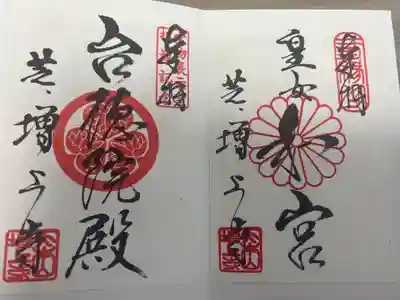 奉拝
皇女和宮
芝増上寺
奉拝
台徳院殿
芝増上寺